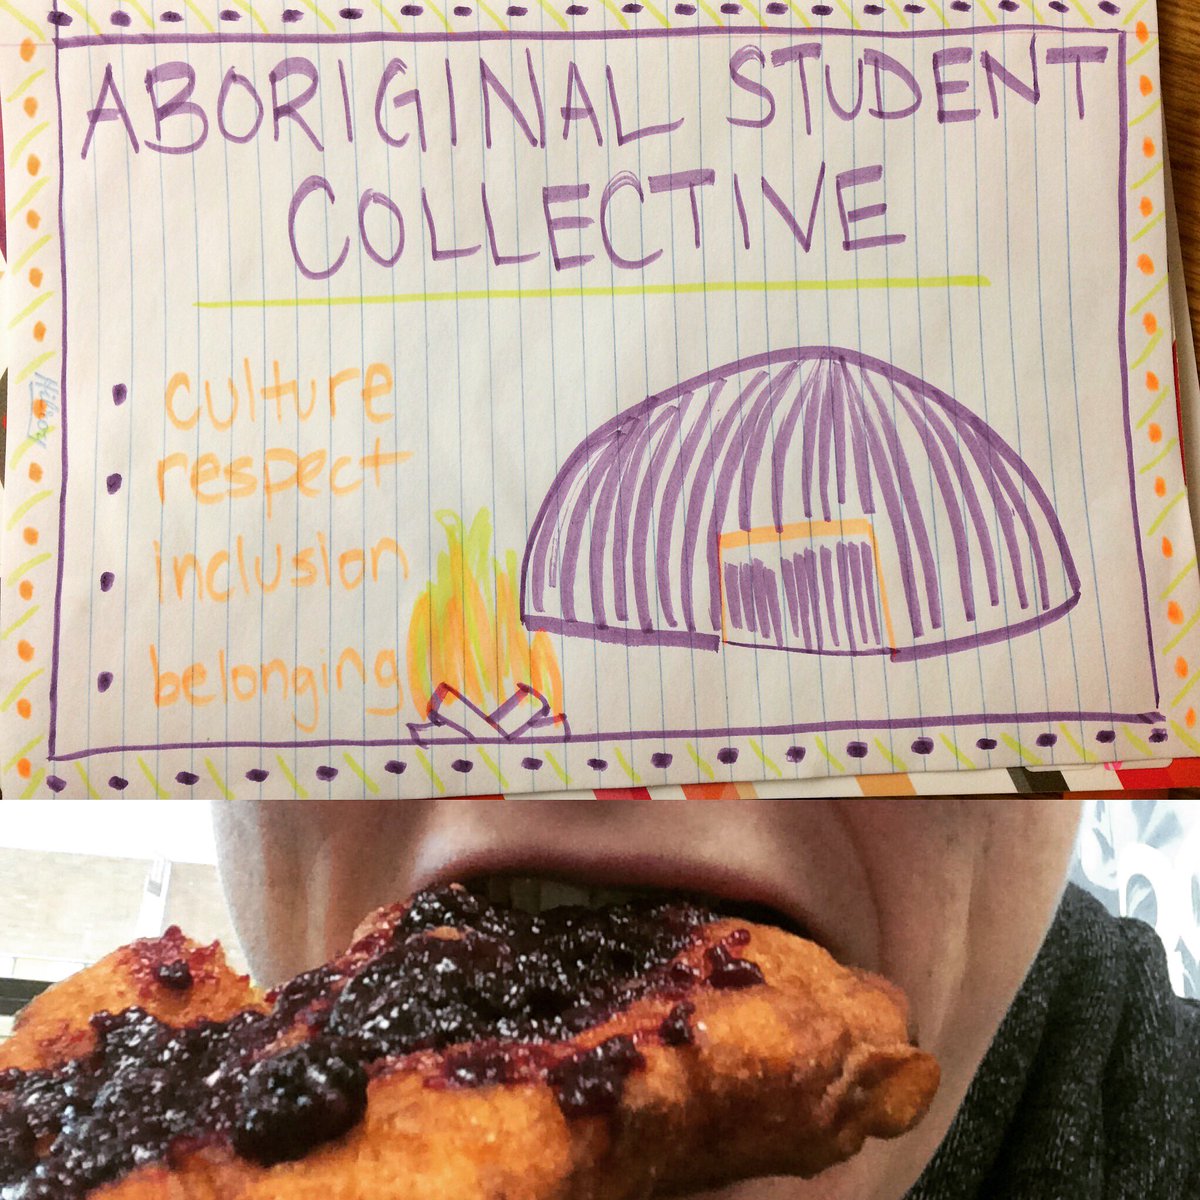 ABORIGINAL STUDENT
COLLECTIVE
• culture
• respect
• inclusion
• belonging
Hilroy